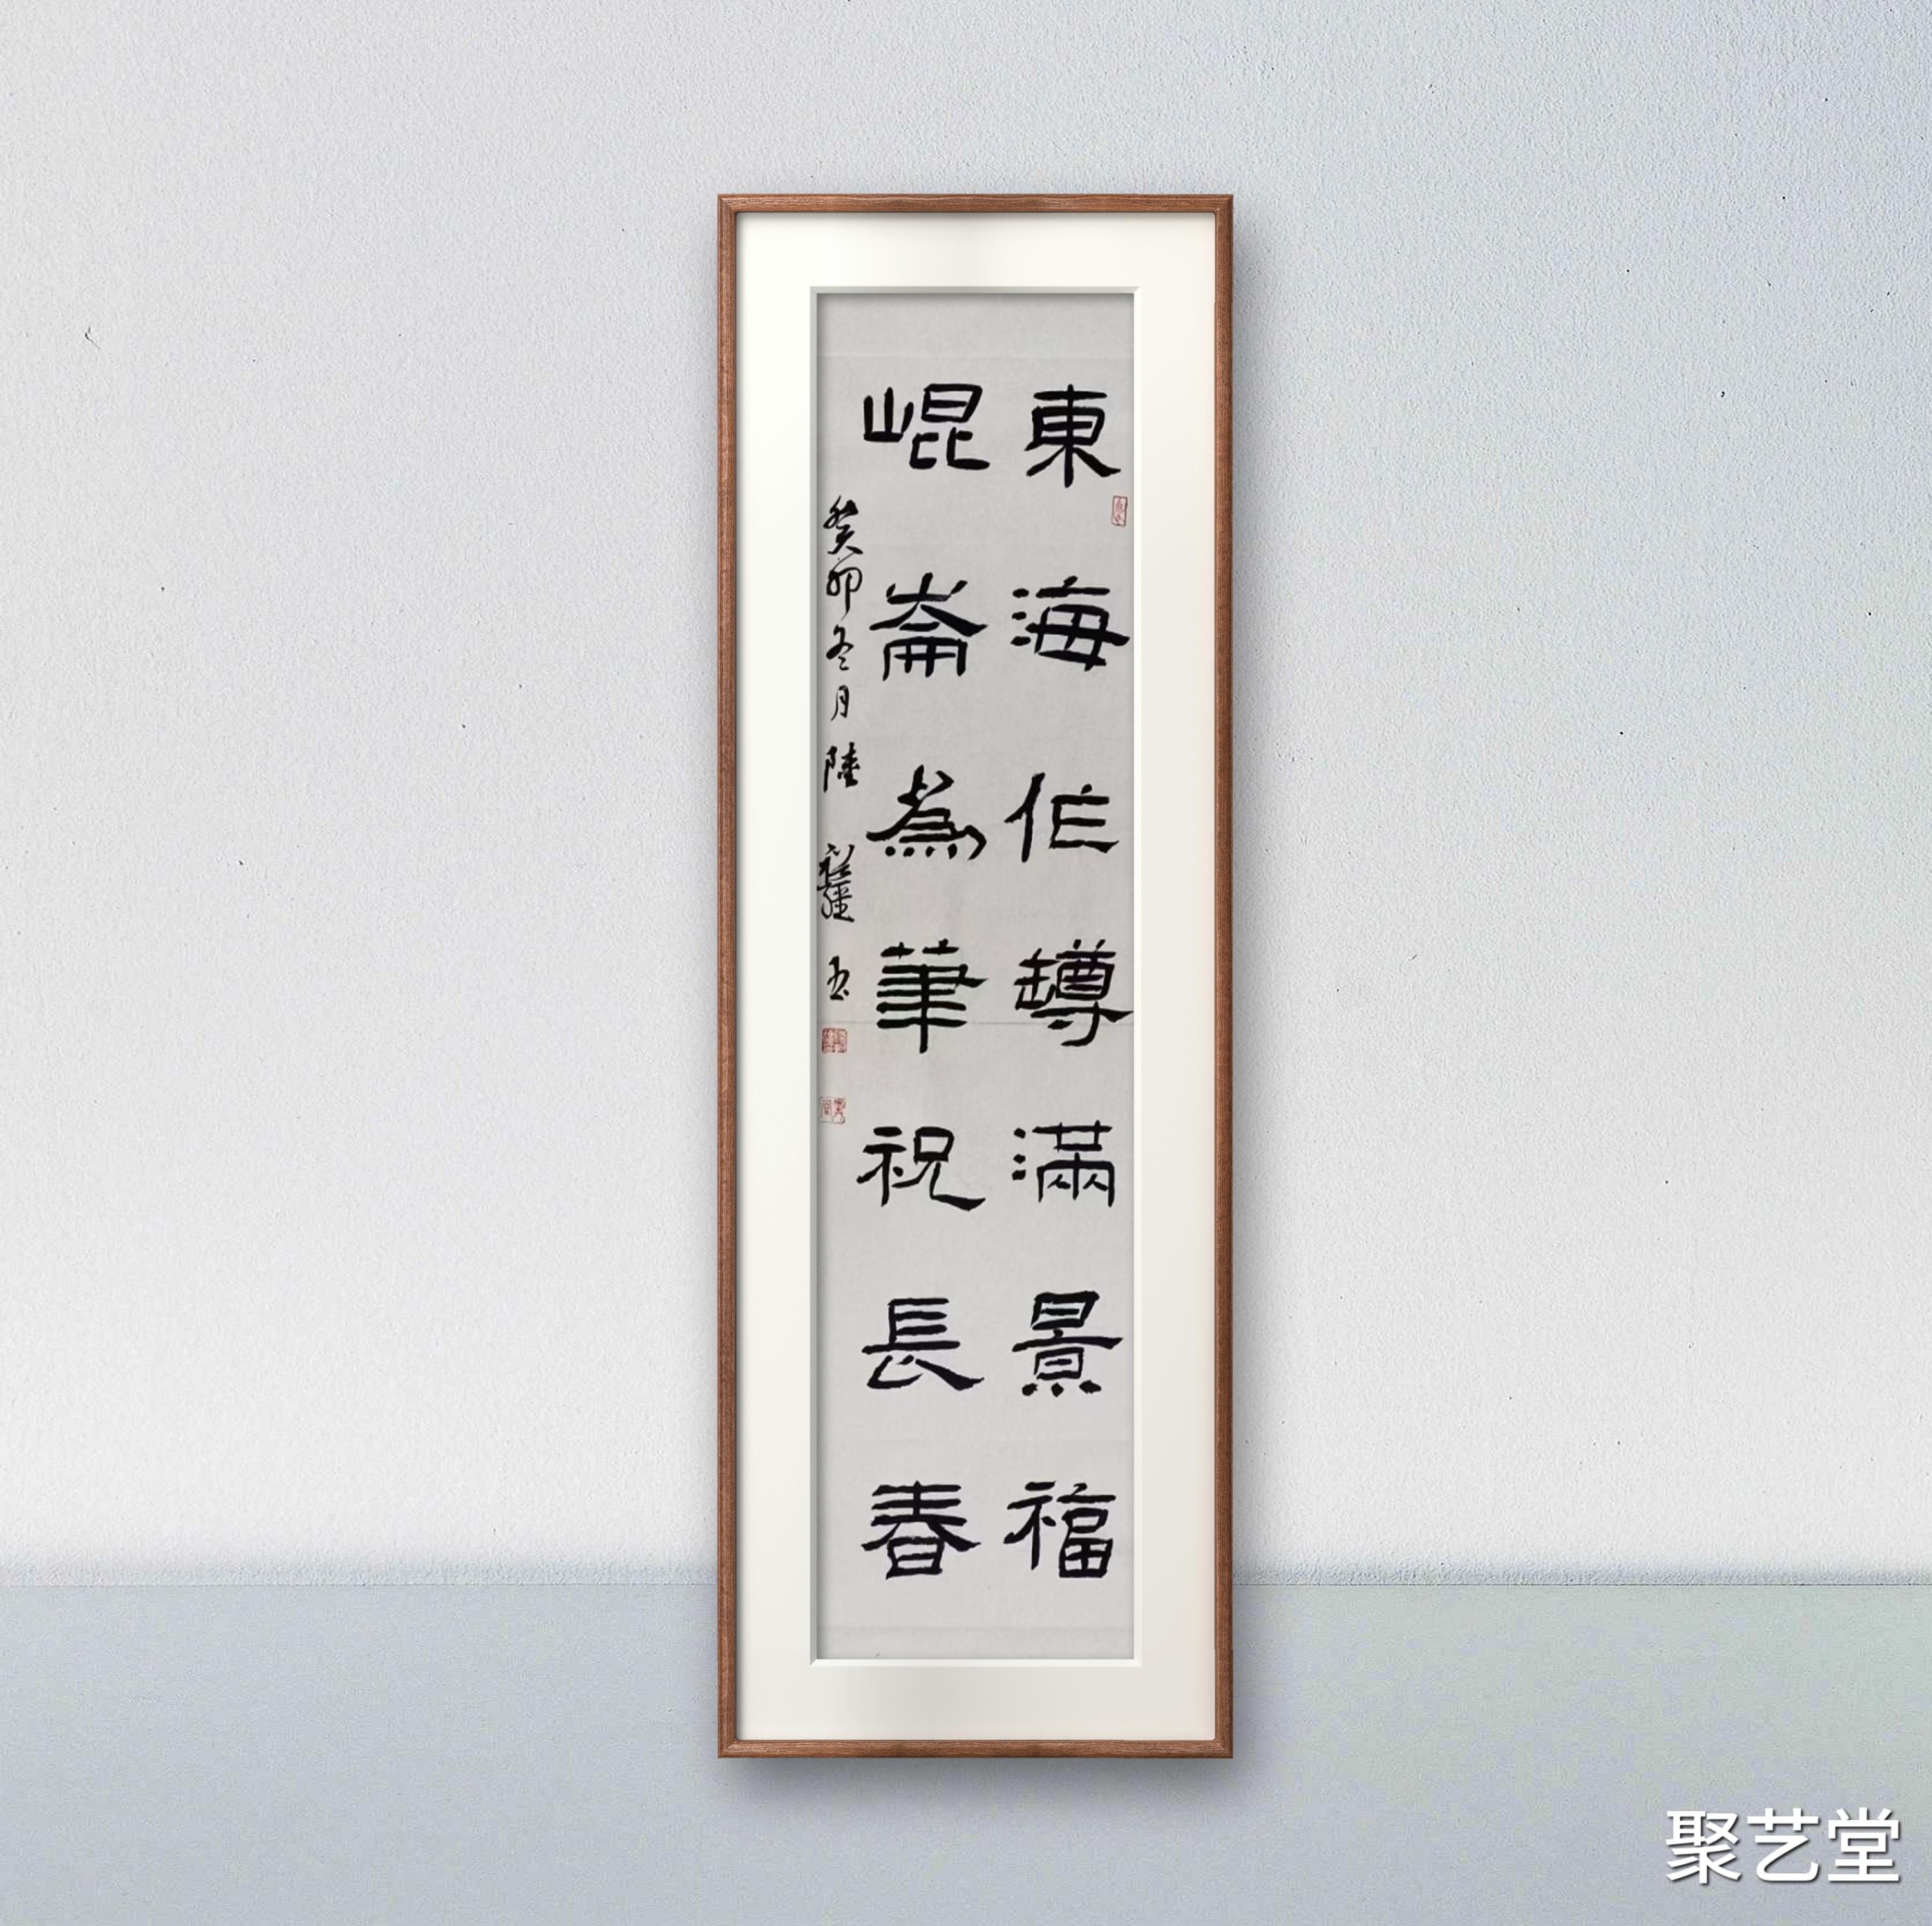 東海作罇滿景福
崐崙為筆祝長春
癸卯冬月陸
聚艺堂